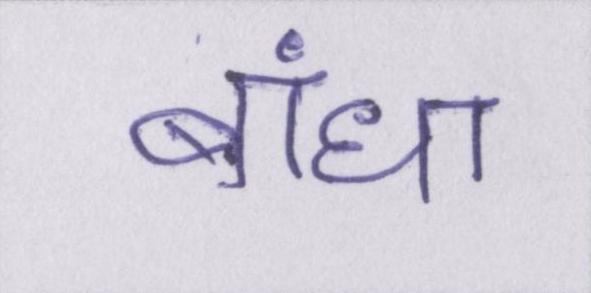 बांधा